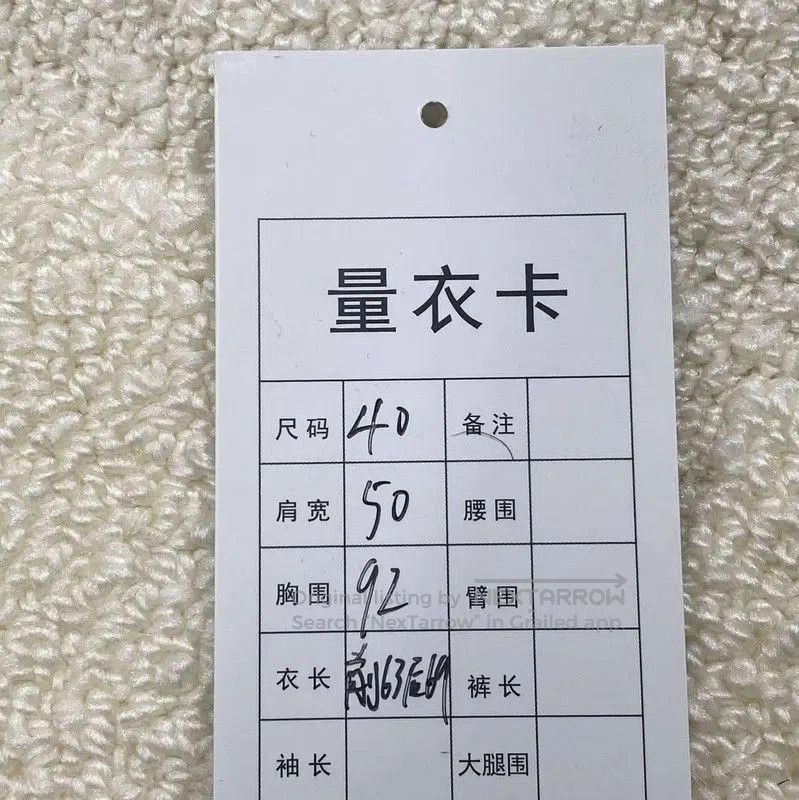 量衣卡
尺码 40 备注
肩宽 50 腰围
胸围 92 臂围
Original listing by NEXTARROW
Search "NexTarrow" in Grailed app
衣长 前63后69 裤长
袖长 大腿围